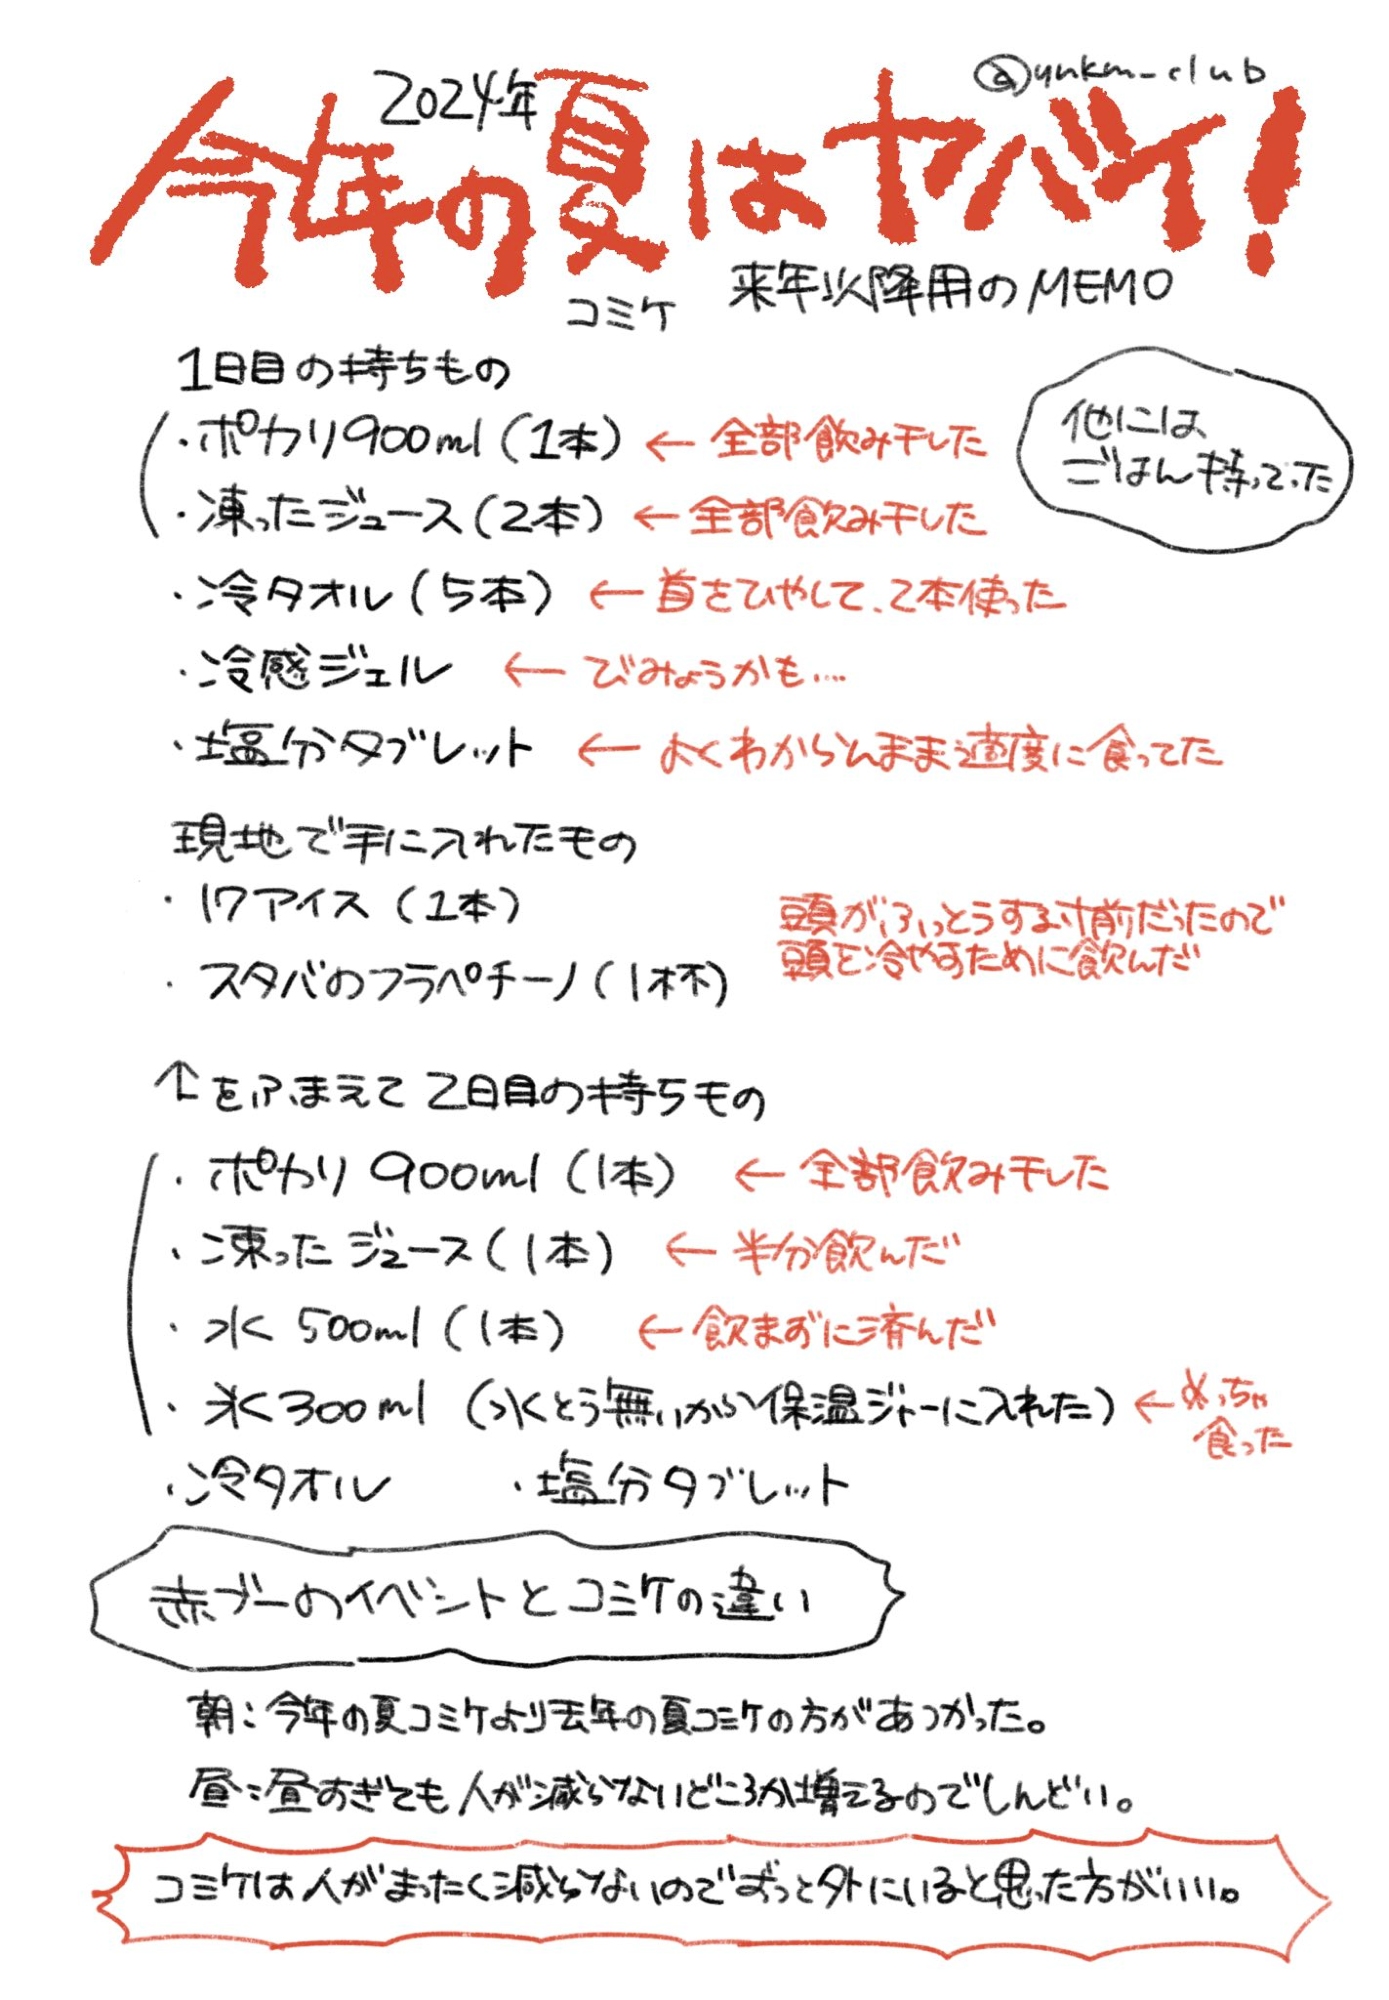 2024年
@ynkm_club
今年の夏はヤバイ!
コミケ
来年以降用のMEMO
1日目の持ちもの
・ポカリ900ml(1本) ← 全部飲み干した
・凍ったジュース(2本) ← 全部飲み干した
他には
ごはん持ってった
・冷タオル(5本) ← 首をひやして、2本使った
・冷感ジェル ← びみょうかも…
・塩分タブレット ← よくわからんまま適度に食ってた
現地で手に入れたもの
・17アイス(1本)
・スタバのフラペチーノ(1杯)
頭がふっとうする寸前だったので
頭を冷やすために飲んだ
↑をふまえて2日目の持ちもの
・ポカリ 900ml(1本) ← 全部飲み干した
・凍ったジュース(1本) ← 半分飲んだ
・水 500ml(1本) ← 飲まずに済んだ
・氷300ml(水とう無いから保温ジャーに入れた) ← めっちゃ
食った
・冷タオル ・塩分タブレット
赤ブーのイベントとコミケの違い
朝:今年の夏コミケより去年の夏コミケの方があつかった。
昼:昼すぎても人が減らないどころか増えるのでしんどい。
コミケは人がまったく減らないのでずっと外にいると思った方がいい。